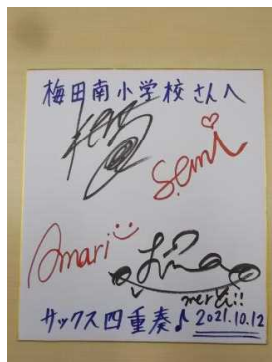 梅田南小学校さんへ
Semi
Amari
merci!!
サックス四重奏♪ 2021.10.12